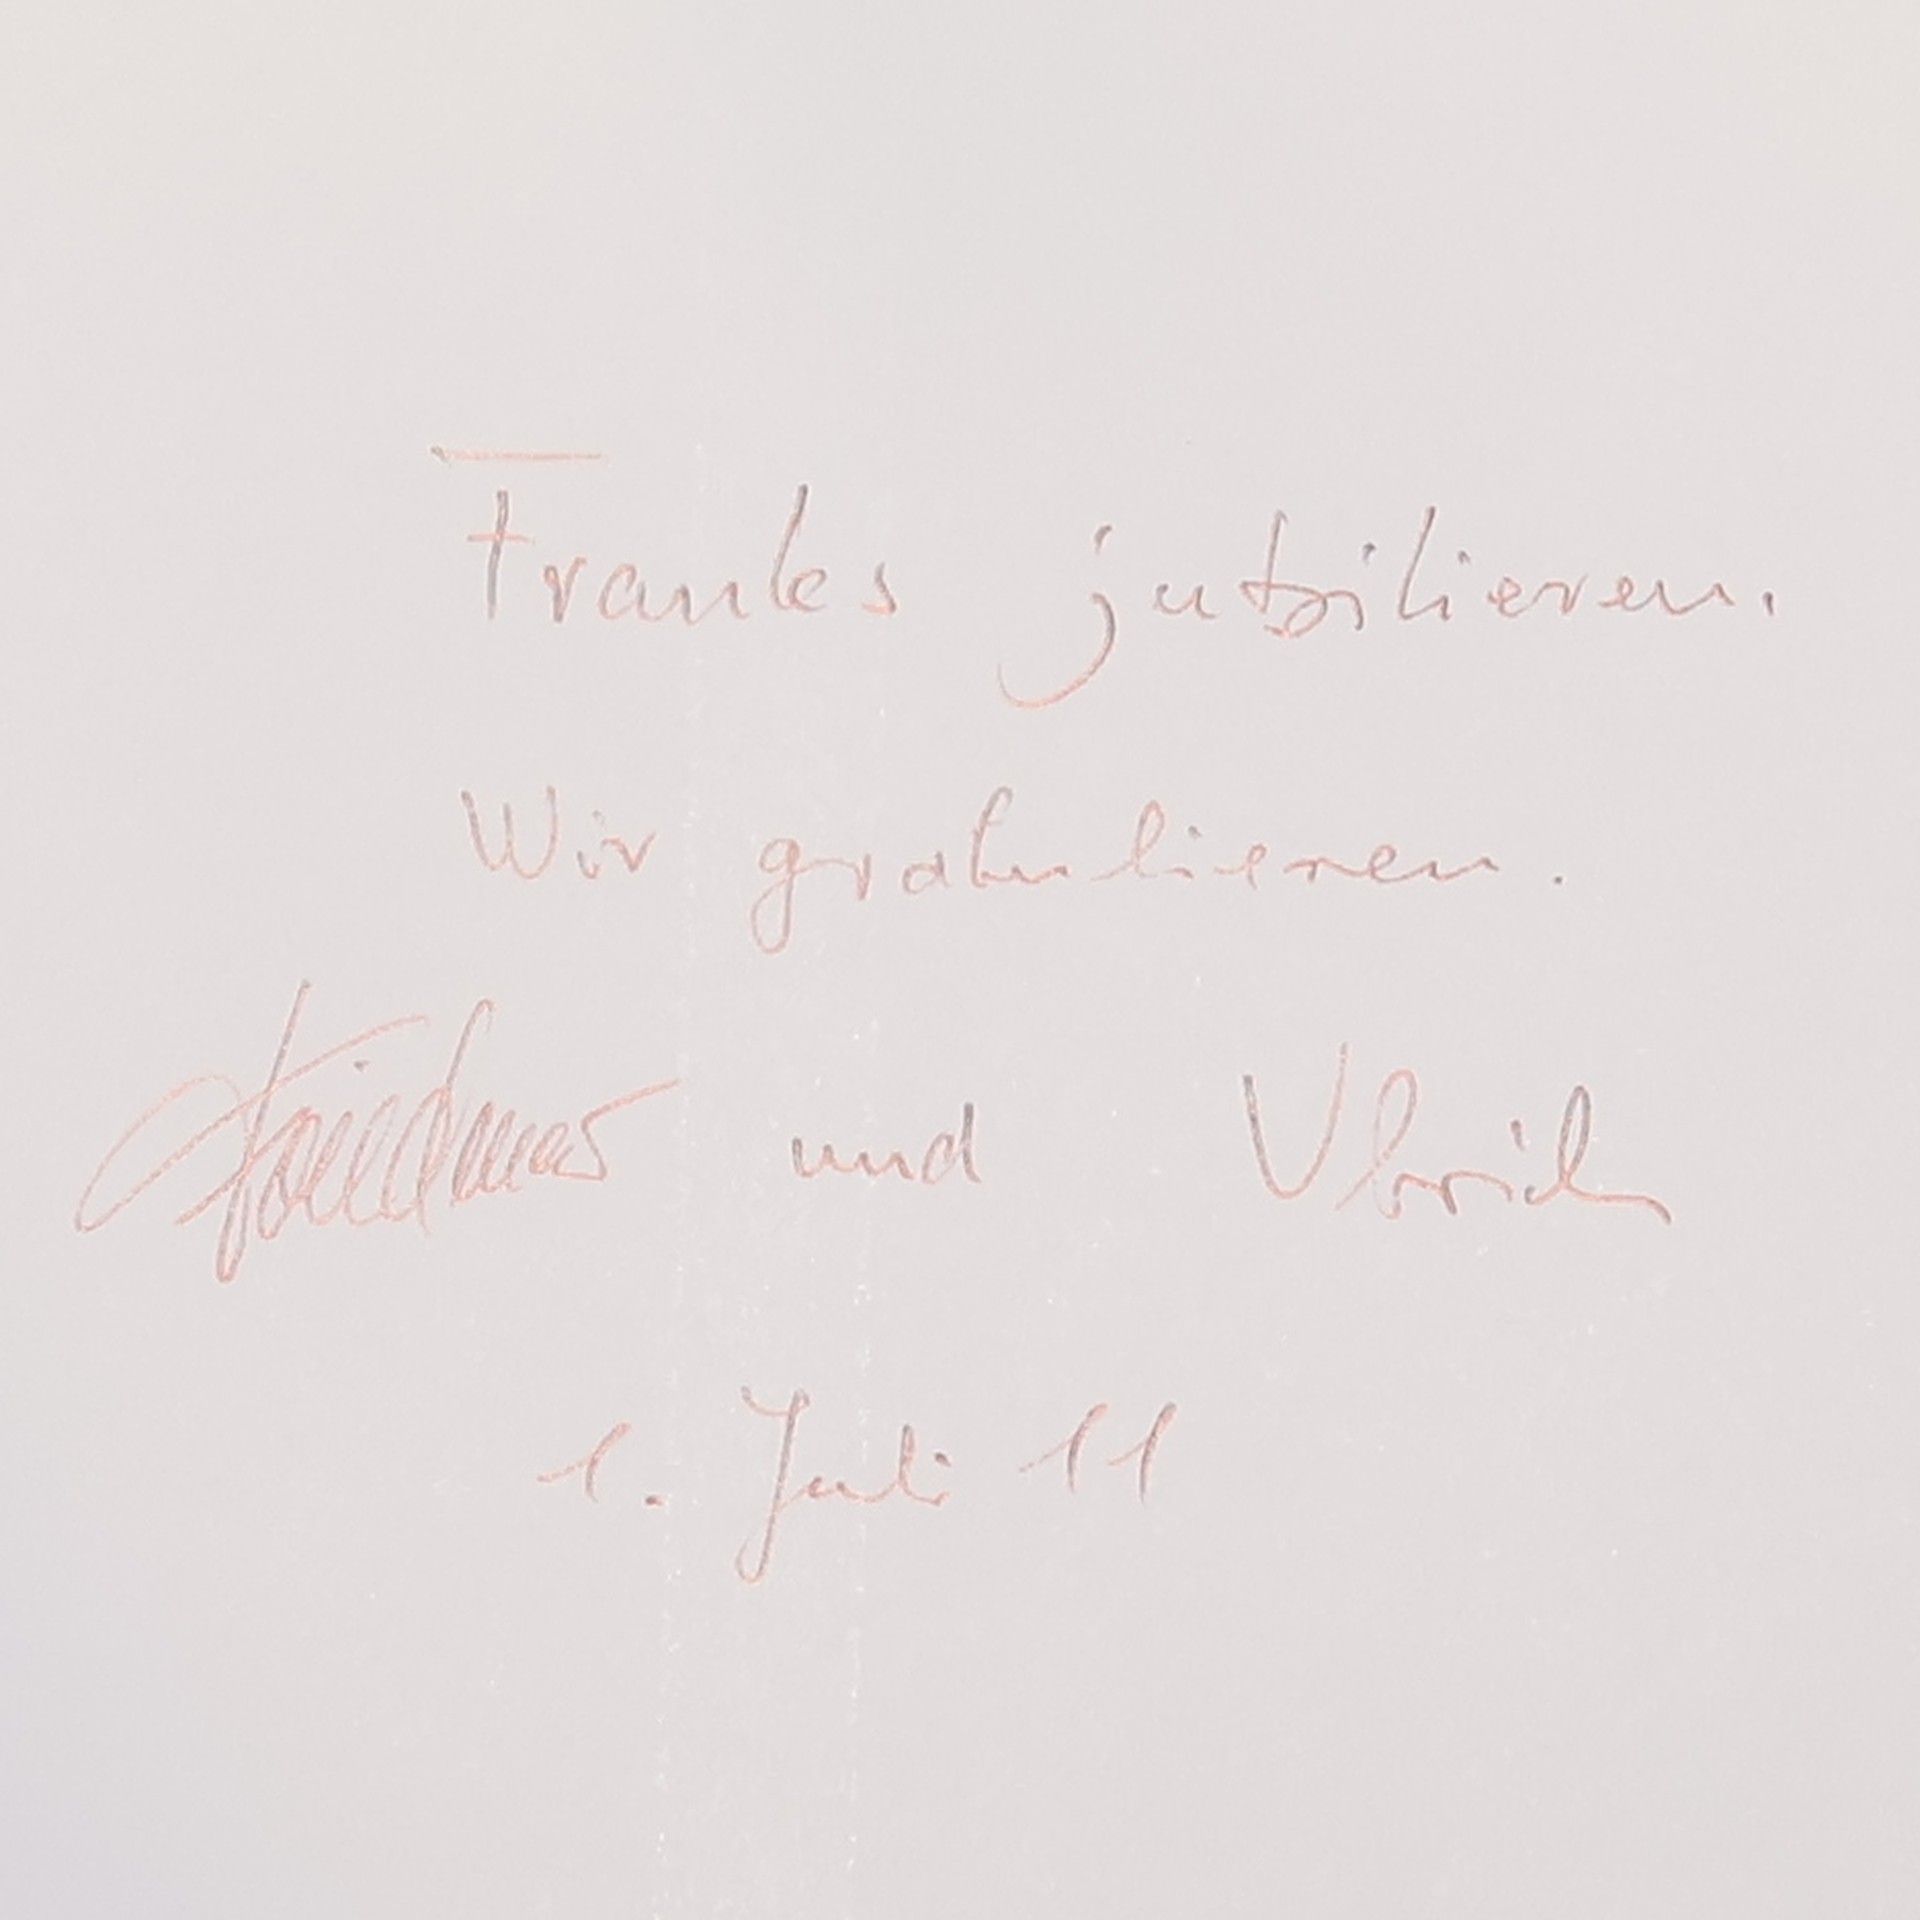 Franks jubilieren.
Wir gratulieren.
Friedmar und Ulrich
1. Juli 11